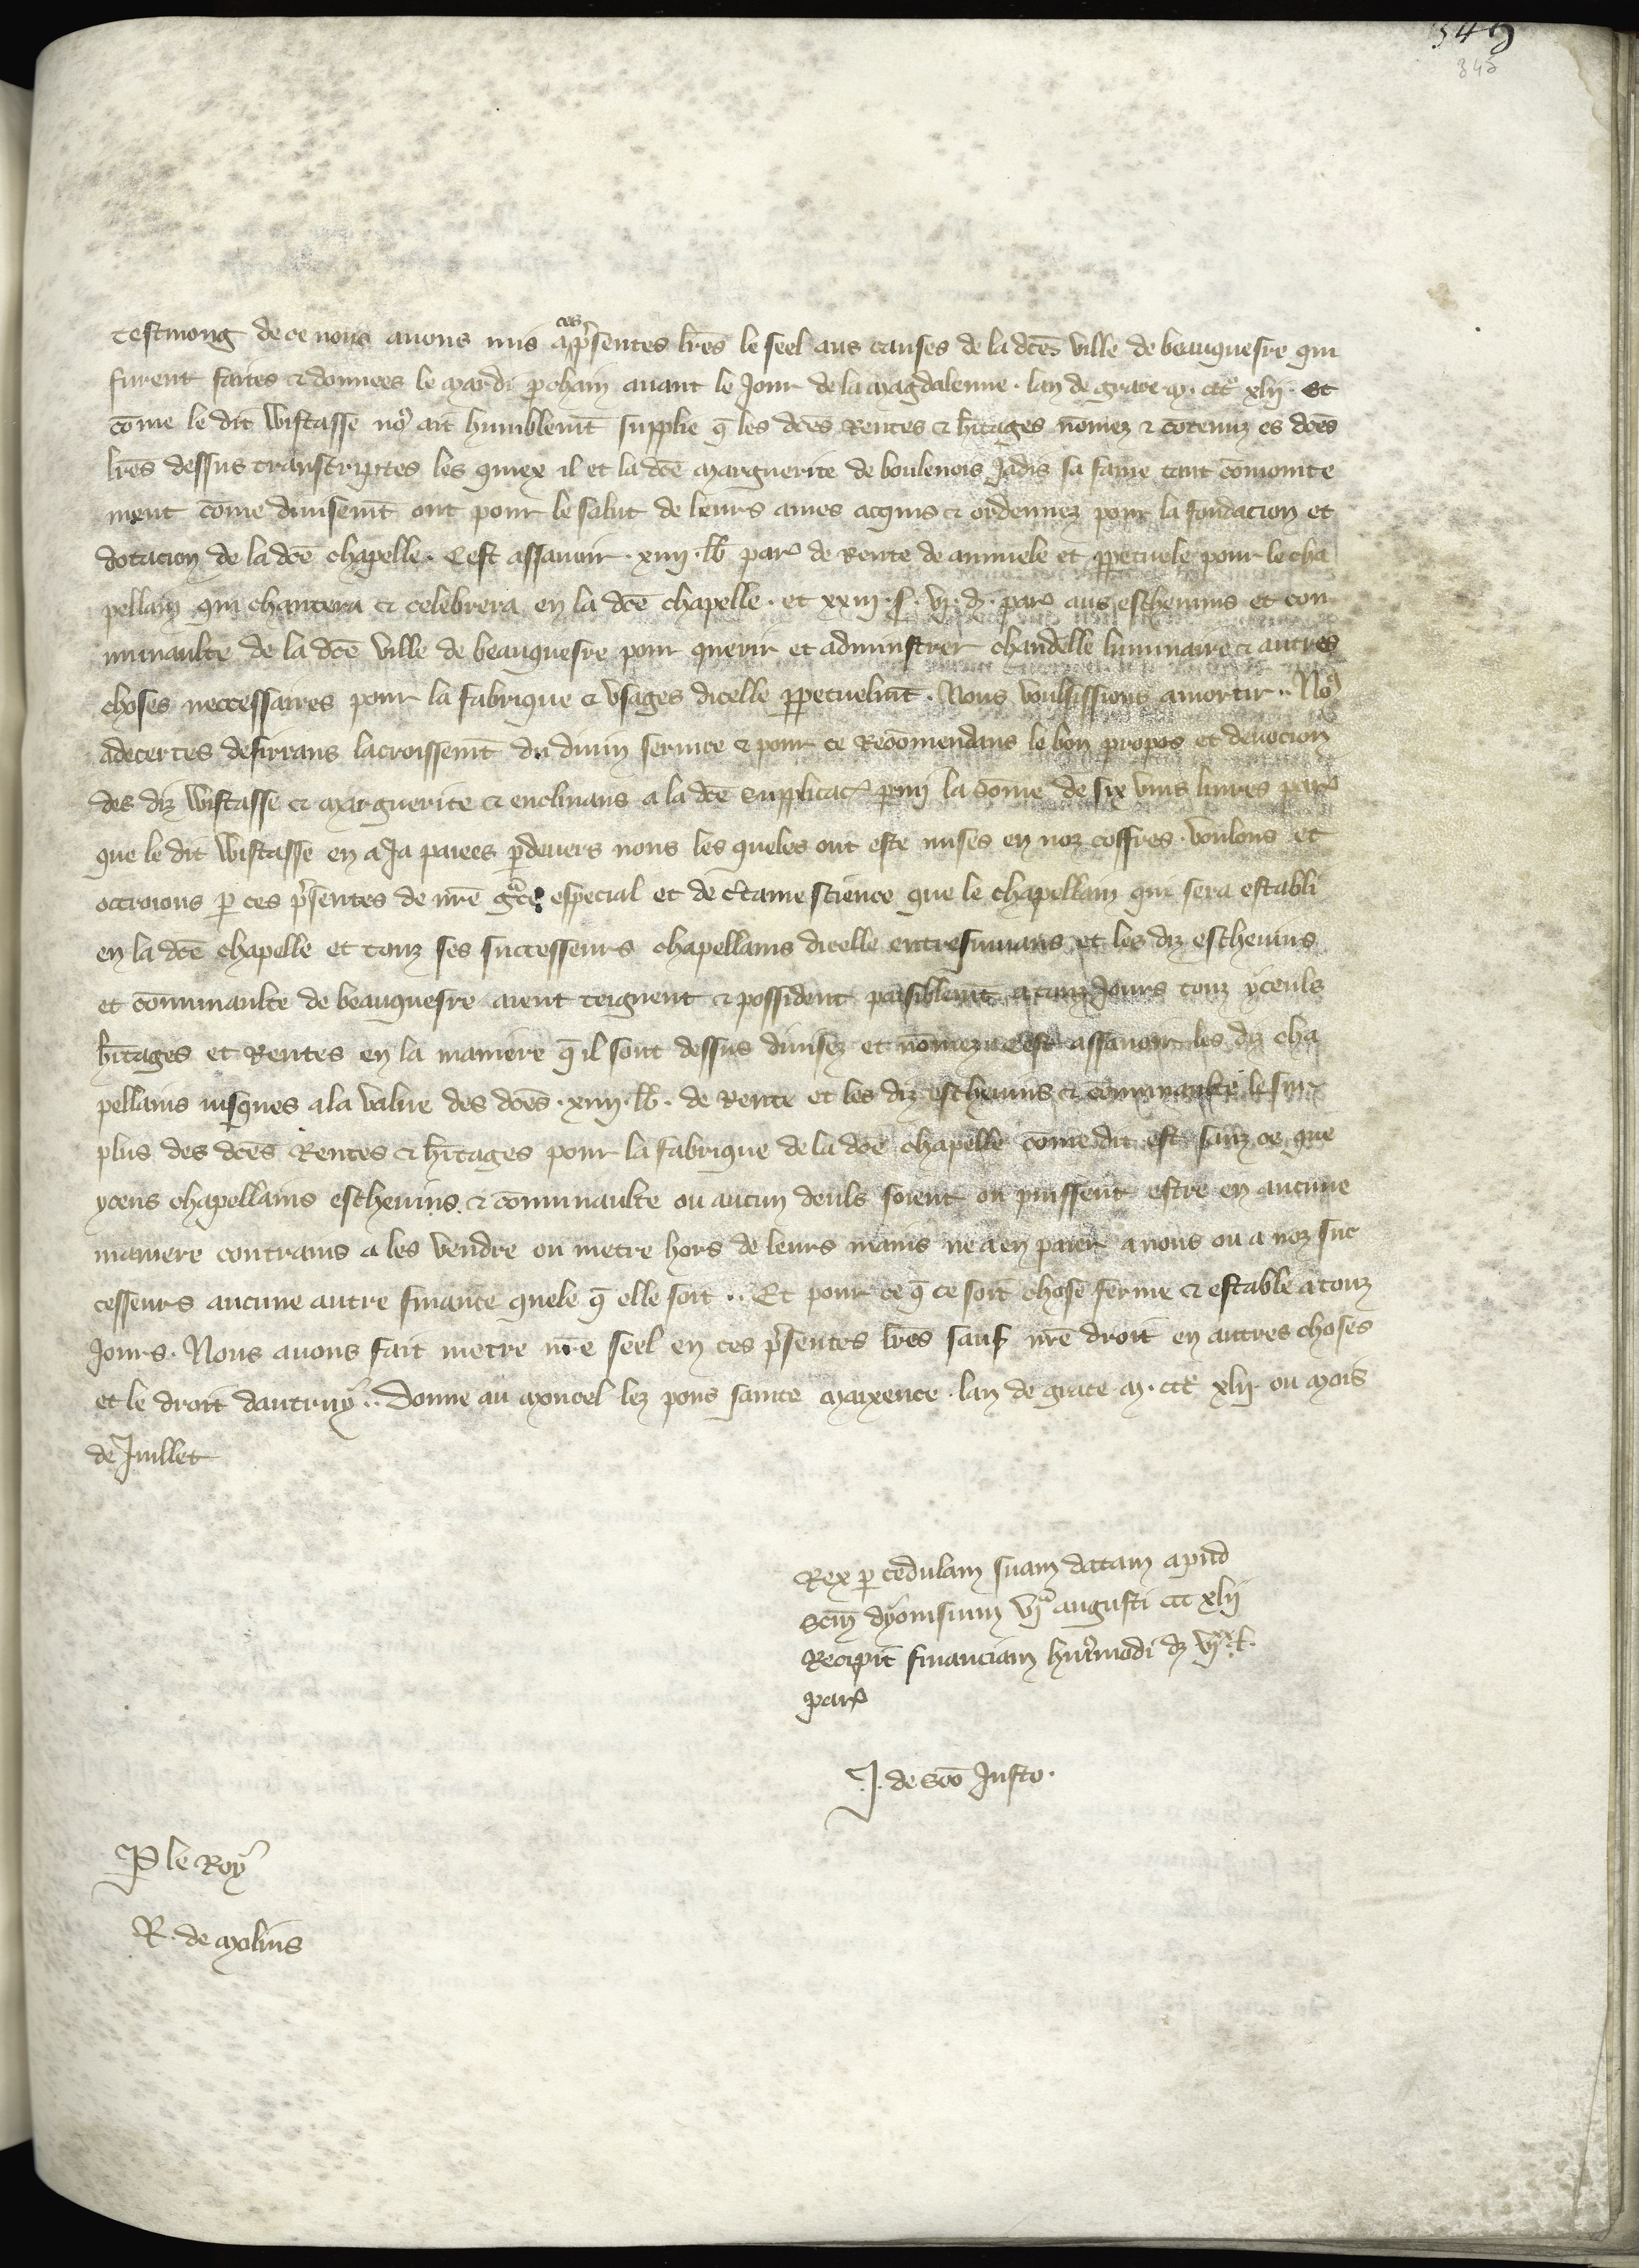 349
345
testmong de ce nous auons mis a ces p̃sentes lr̃es le seel aus causes de la dc̃e ville de beauquesne qui
furent faites & donnees le mardi ꝓchain auant le Jour de la magdalenne . lan de grace m . ccc xlij . Et
cõme le dit Wistasse noꝰ ait humblemt̃ supplie q̃ les dc̃es Rentes & hr̃itages nõmez & cõtenuz es dc̃es
lr̃es dessus transcriptes les quiex il et la dc̃e marguerite de boulenois Jadis sa fame tant cõmointe
ment cõme diuisemt̃ ont pour le salut de leurs ames acquis & ordennez pour la fondacion et
dotacion de la dc̃e chapelle . Cest assauoir . xiiij . lb̃ par̃ de Rente de annuele et ꝑpetuele pour le cha
pellain qui chantera & celebrera en la dc̃e chapelle . et xxiij . s . vj . d . par̃ aus escheuins et con
munaulte de la dc̃e ville de beauquesne pour querir et administrer chandelle luminaire & autres
choses neccessaires pour la fabrique & vsages dicelle ꝑpetuelmt̃ . Nous voulsissions amortir .. Noꝰ
adecertes desirrans lacroissemt̃ du diuin seruice & pour ce Recõmendans le bon ꝓpos et deuocion
des diz Wistasse & marguerite & enclinans a la dc̃e supplicac̃ ꝑmi la sõme de six vins liures par̃
que le dit Wistasse en a Ja paiees ꝑdeuers nous les queles ont este mises en noz coffres . voulons et
octroions ꝑ ces p̃sentes de nr̃e gr̃ce especial et de c̃taine science que le chapellain qui sera establi
en la dc̃e chapelle et touz ses successeurs chapellains dicelle entresuiuans et les diz escheuins
et cõmunaulte de beauquesne aient teignent & possident paisiblemt̃ a touz Jours touz yceuls
hr̃itages et Rentes en la maniere q̃ il sont dessus diuisez et nõmez cest assauoir les diz cha
pellains iusques a la value des dc̃es . xiiij . lb̃ . de Rente et les diz escheuins & cõmunaulte le sur
plus des dc̃es Rentes & hr̃itages pour la fabrique de la dc̃e chapelle cõme dit est sanz ce que
yceus chapellains escheuins & cõmunaulte ou aucun deuls soient ou puissent estre en aucune
maniere contrains a les vendre ou metre hors de leurs mains ne a en paier a nous ou a noz suc
cesseurs aucune autre finance quele q̃ elle soit .. Et pour ce q̃ ce soit chose ferme & estable a touz
Jours . Nous auons fait metre nr̃e seel en ces p̃sentes lr̃es sauf nr̃e droit en autres choses
et le droit dautruy .. Donne au moncel lez pons sainte maixence . lan de grace m . ccc xlij . ou mois
de Juillet
Rex ꝑ cedulam suam datam apud
Scm̃ dyonisium vjᵃ augusti ccc xlij
Recipit financiam huiꝰmodi dz vjˣˣ l .
par̃
J . de sc̃o Justo .
P le Roy
R . de molins